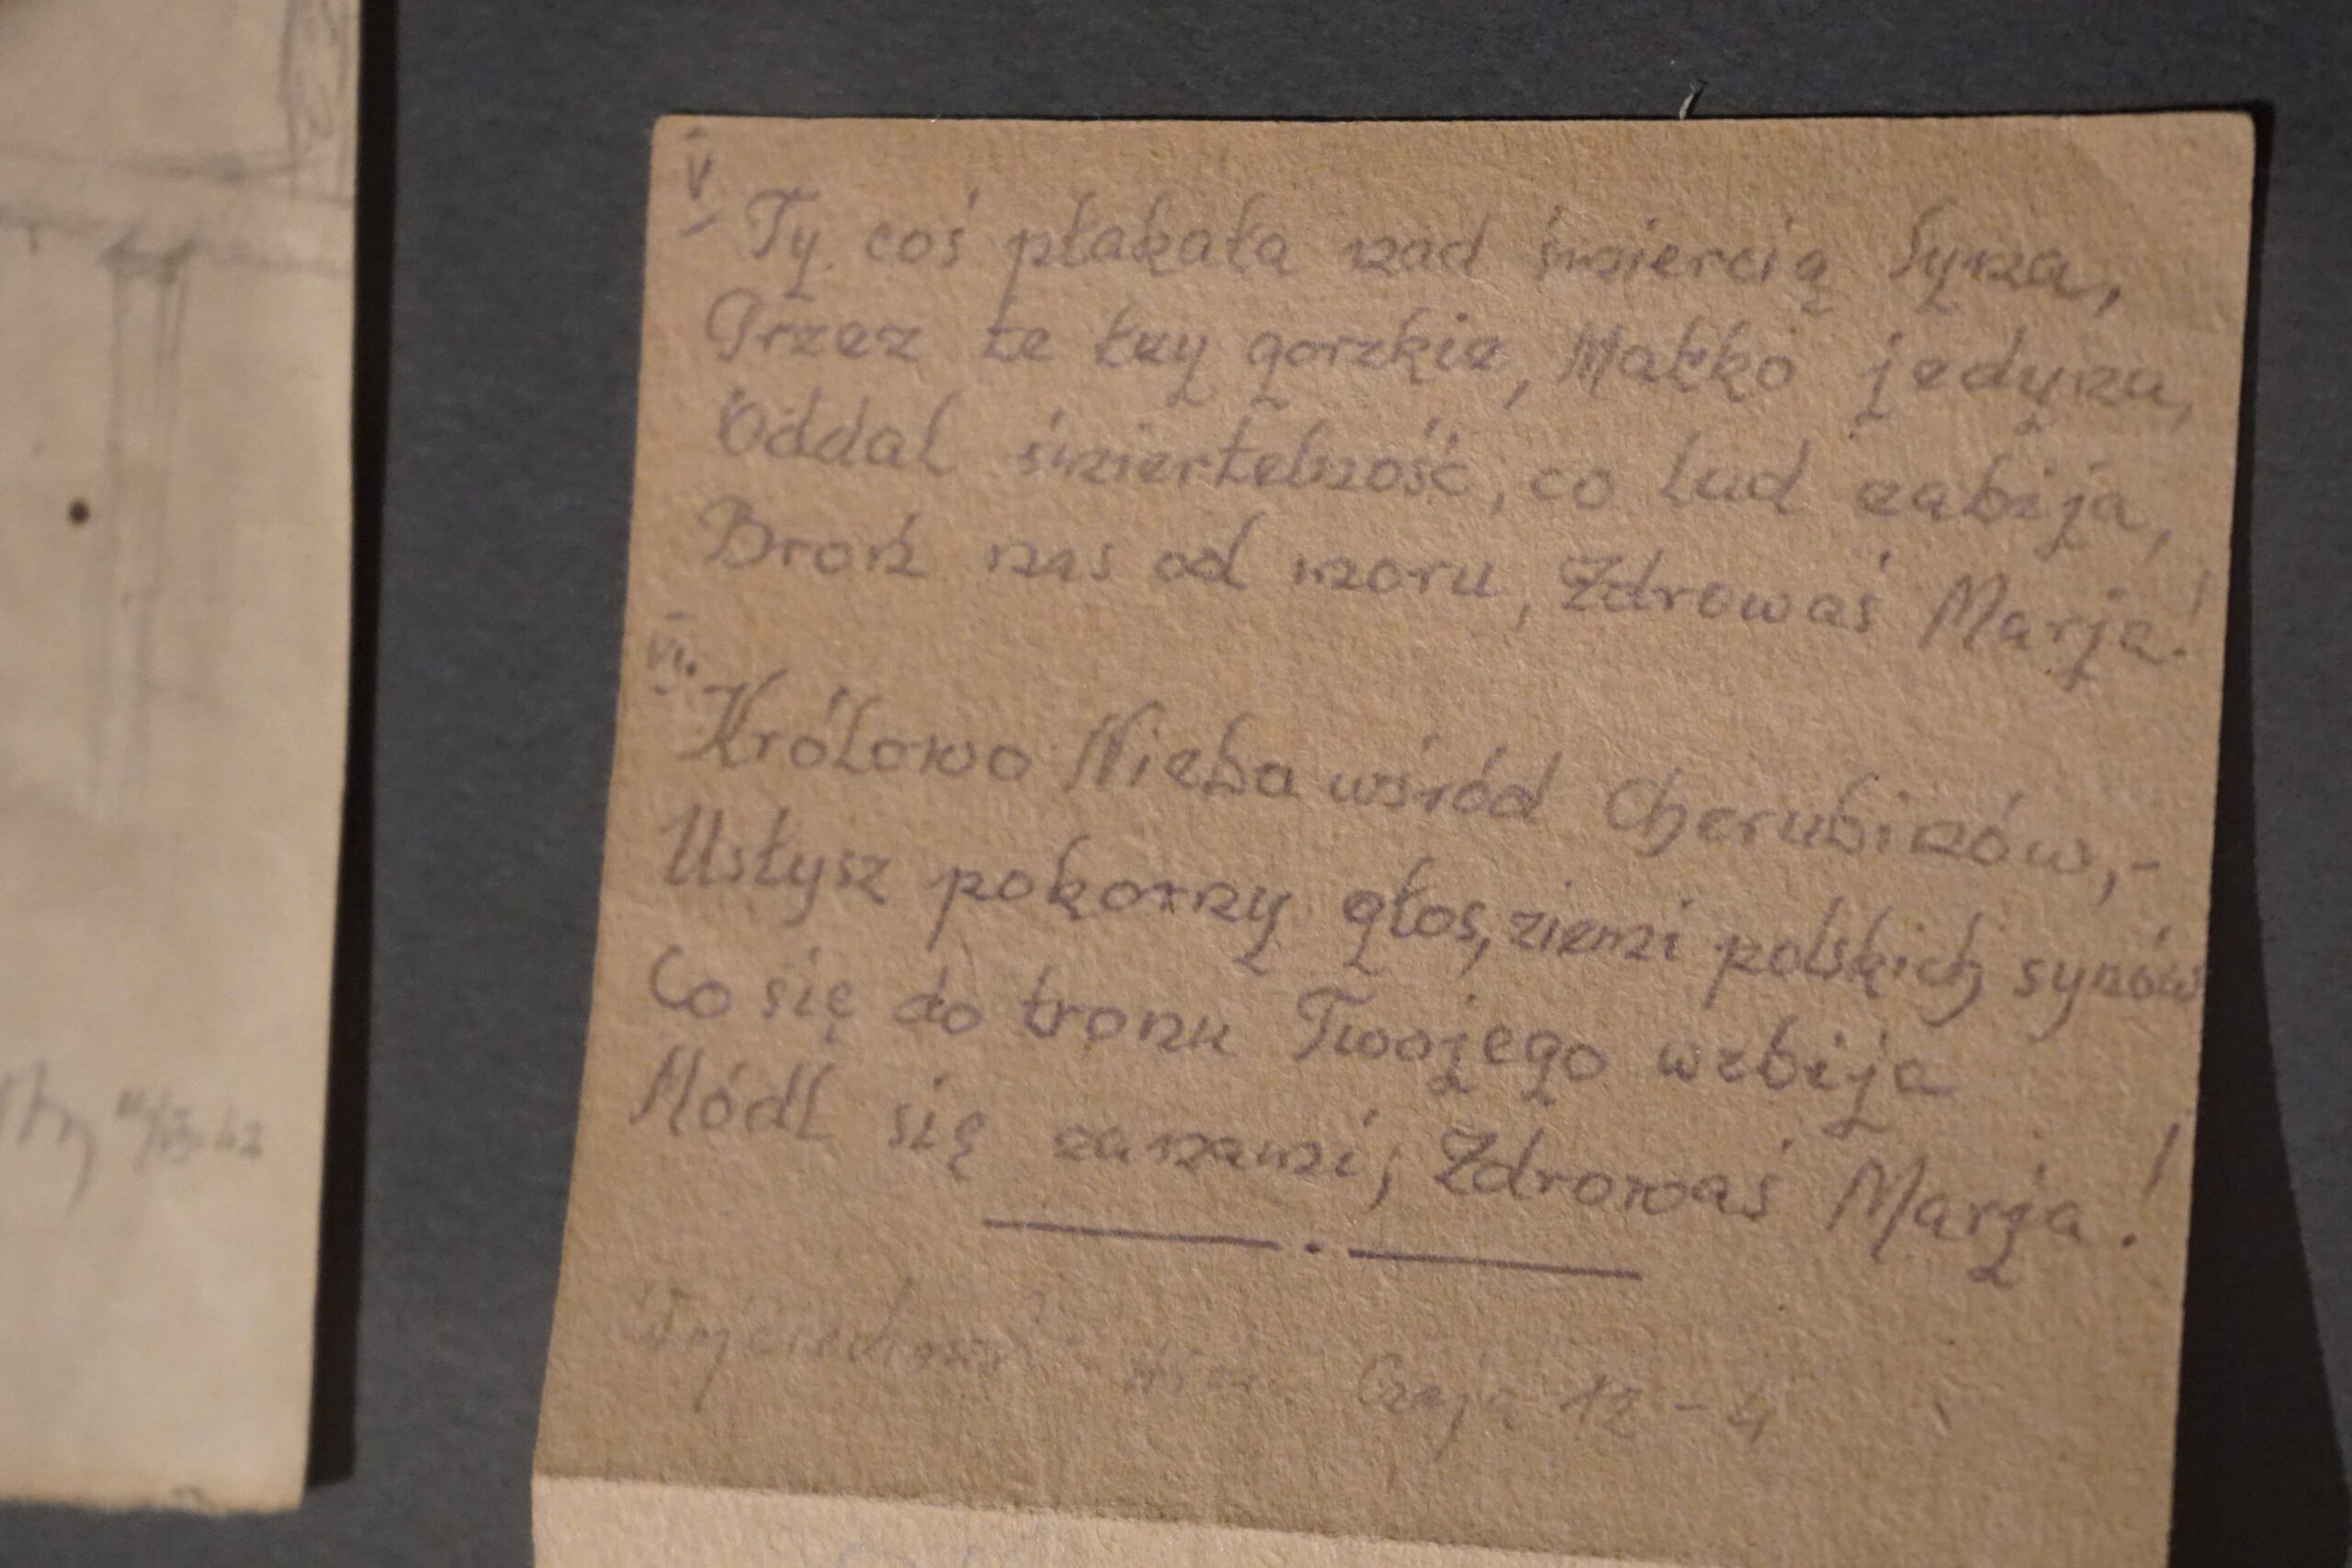 V.
Ty coś płakała nad śmiercią Syna,
Przez te łzy gorzkie, Matko jedyna,
Oddal śmiertelność, co lud zabija,
Broń nas od moru, Zdrowaś Marja!
VI.
Królowo Nieba wśród Cherubinów,-
Usłysz pokorny głos, ziemi polskich synów
Co się do tronu Twojego wzbija
Módl się zanami, Zdrowaś Marja!
12 - 4